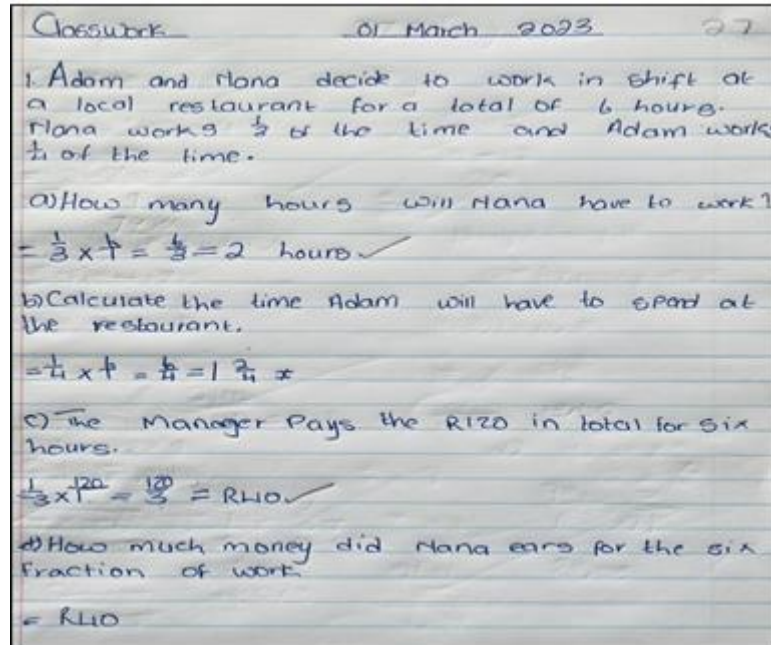 Classwork 01 March 2023 27
1. Adam and Hana decide to work in shift at
a local restaurant for a total of 6 hours.
Hana works 1/3 of the time and Adam works
1/4 of the time.
a) How many hours will Hana have to work?
= 1/3 × 6/1 = 6/3 = 2 hours ✓
b) Calculate the time Adam will have to spend at
the restaurant.
= 1/4 × 6/1 = 6/4 = 1 2/4 ×
c) The Manager Pays the R120 in total for six
hours.
1/3 × 120/1 = 120/3 = R40 ✓
d) How much money did Hana earn for the six
fraction of work
= R40